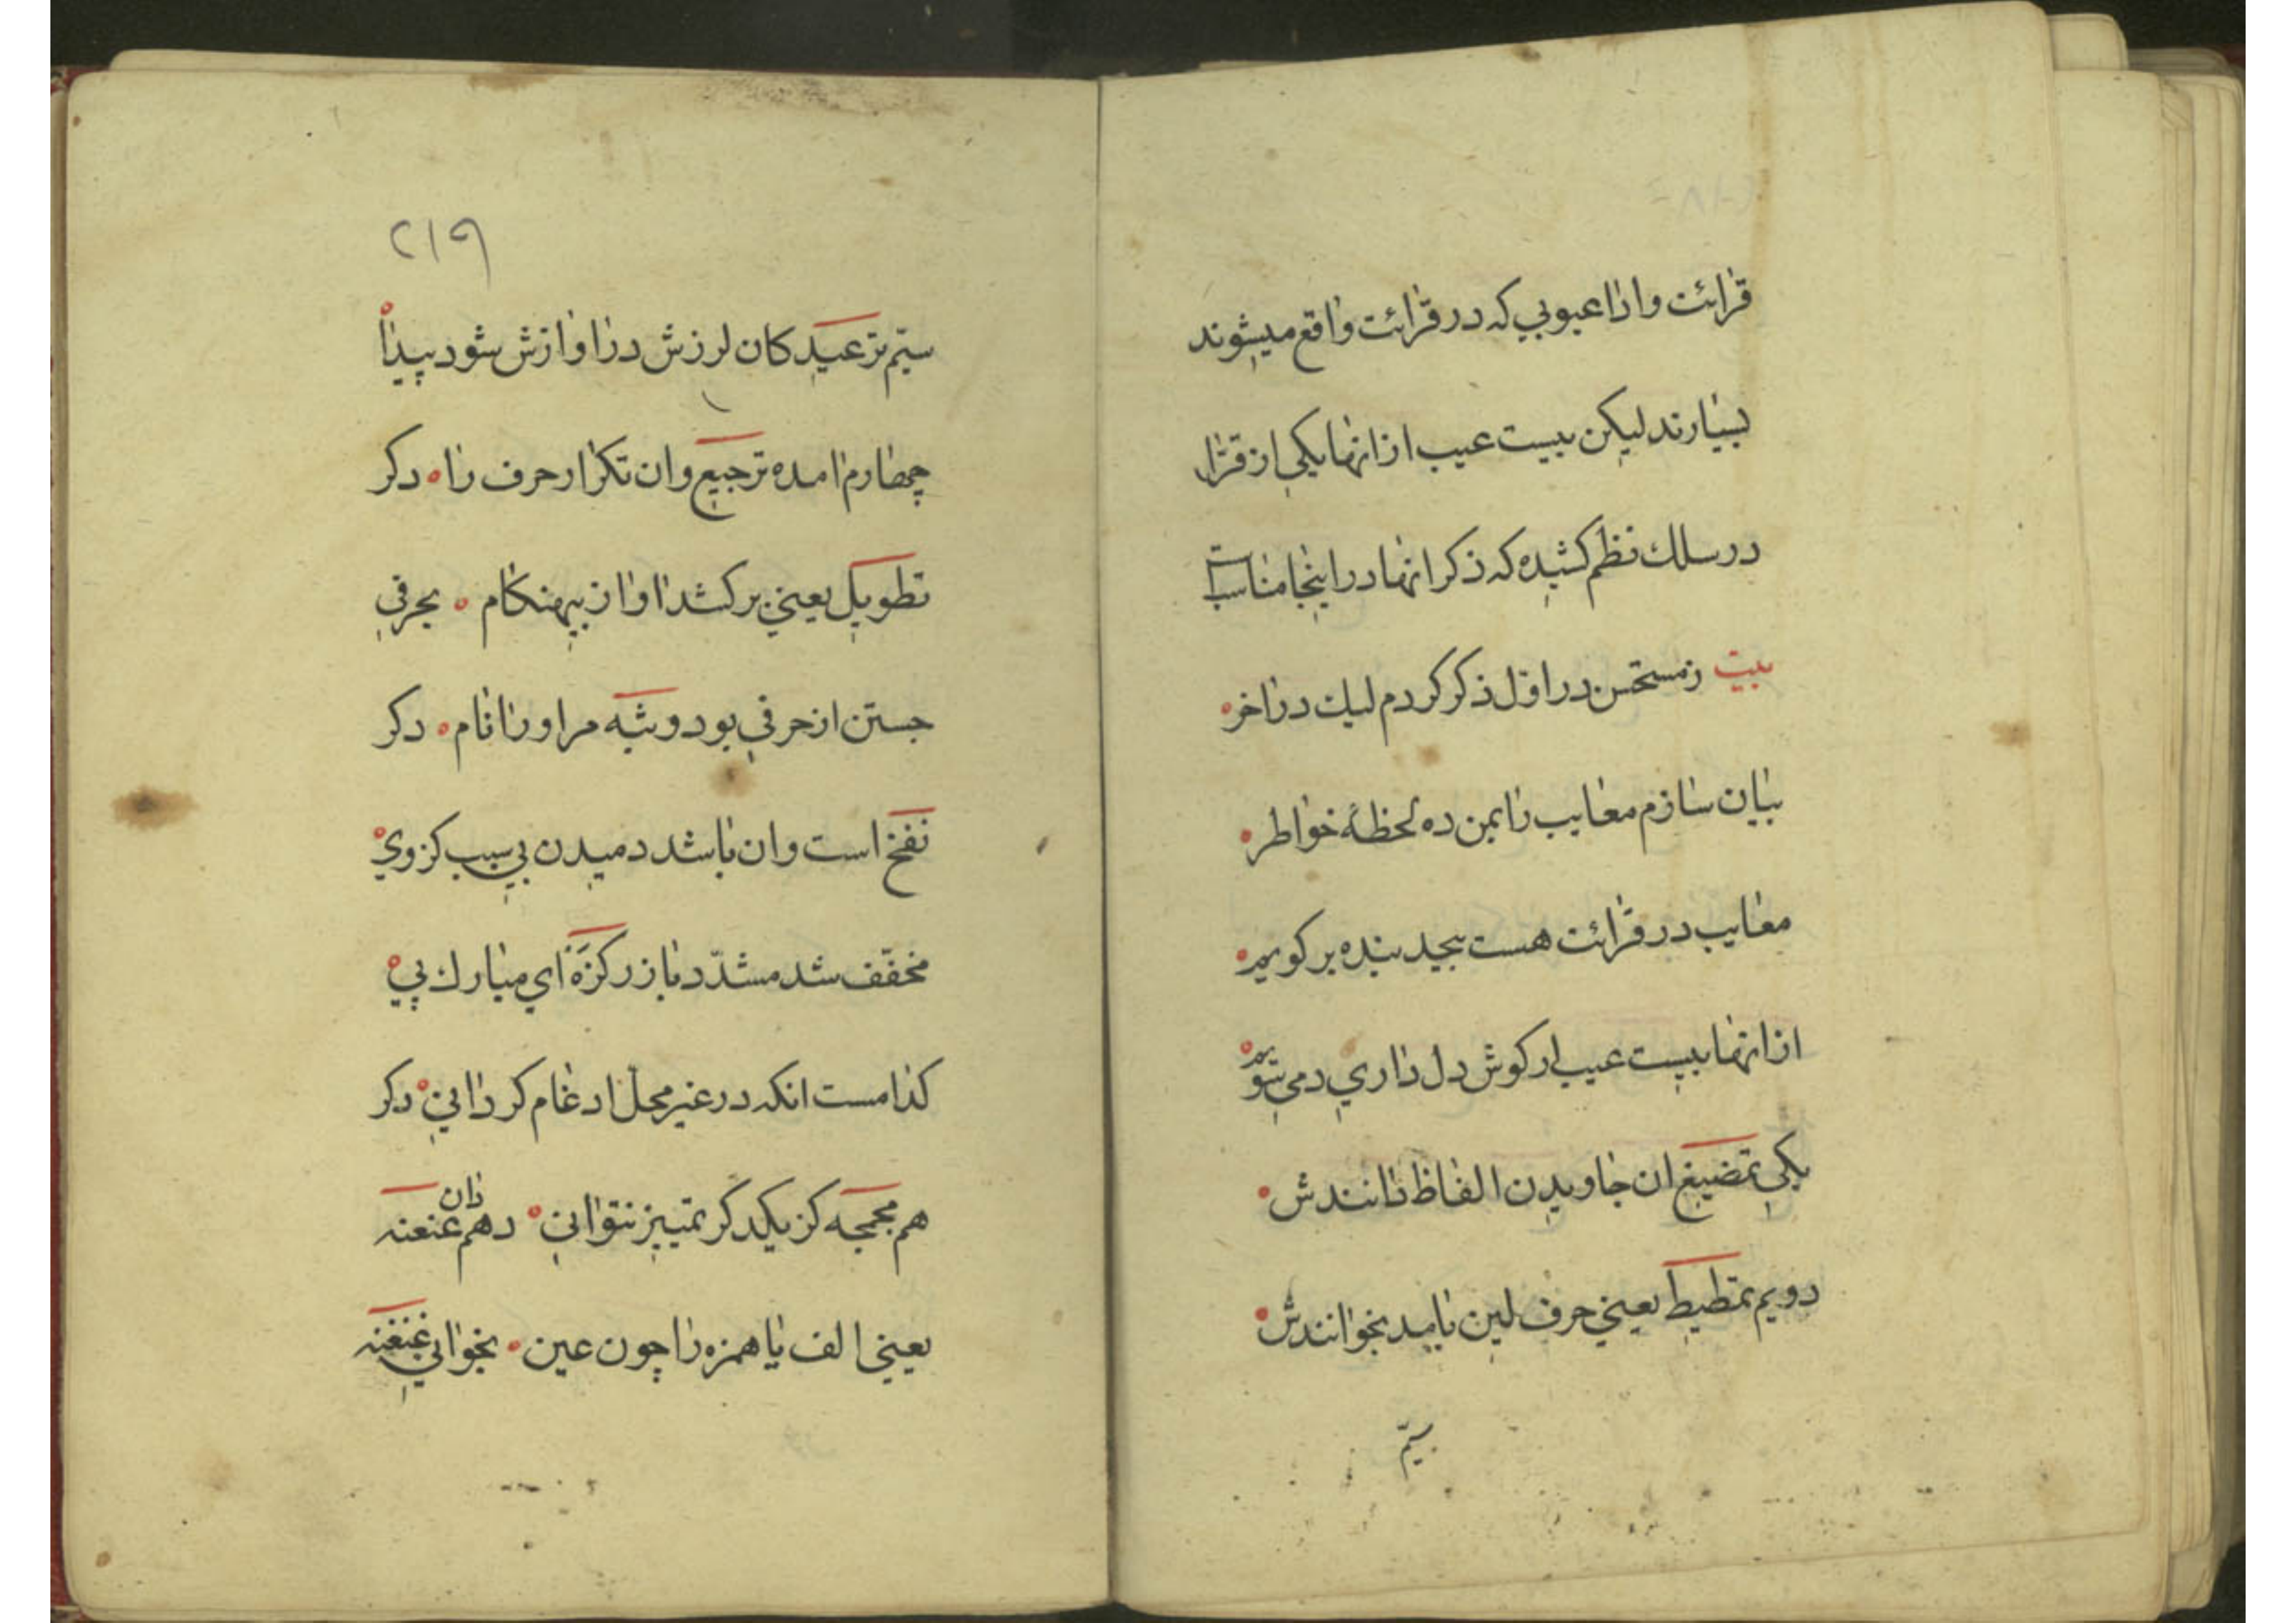 قرائت وادا عیوبی که در قرائت واقع میشوند
بسیارند لیکن بیست عیب از انها یکی از قرّا
در سلك نظم کشیده که ذکر انها در اینجا مناسبست
بیت زمستحسن در اوّل ذکر کردم لیك در اخر
بیان سازم معایب را بمن ده لحظهٔ خواطر
معایب در قرائت هست بیحد بنده بر کویم
از انها بیست عیب ار کوش دل داری دمی شنویم
یکی تمضیغ ان جاویدن الفاظ دانندش
دویم تمطیط یعنی حرف لین با مد بخوانندش
سیّم
۲۱۹
سیّم ترعید کان لرزش در اوازش شود پیدا
چهارم امده ترجیع وان تکرار حرف را دکر
تطویل یعنی بر کشد اواز بیهنکام بحرفی
جستن از حرفی بود وثبه مر او را نام دکر
نفخ است وان باشد دمیدن بی سبب کز وی
مخفّف شد مشدّد باز رکزه ای مبارك پی
کدامست انکه در غیر محل ادغام کردانی دکر
هم مجمجه کز یکدکر تمییز نتوانی دهم زان عنعنه
یعنی الف یا همزه را چون عین بخوانی غنغنه